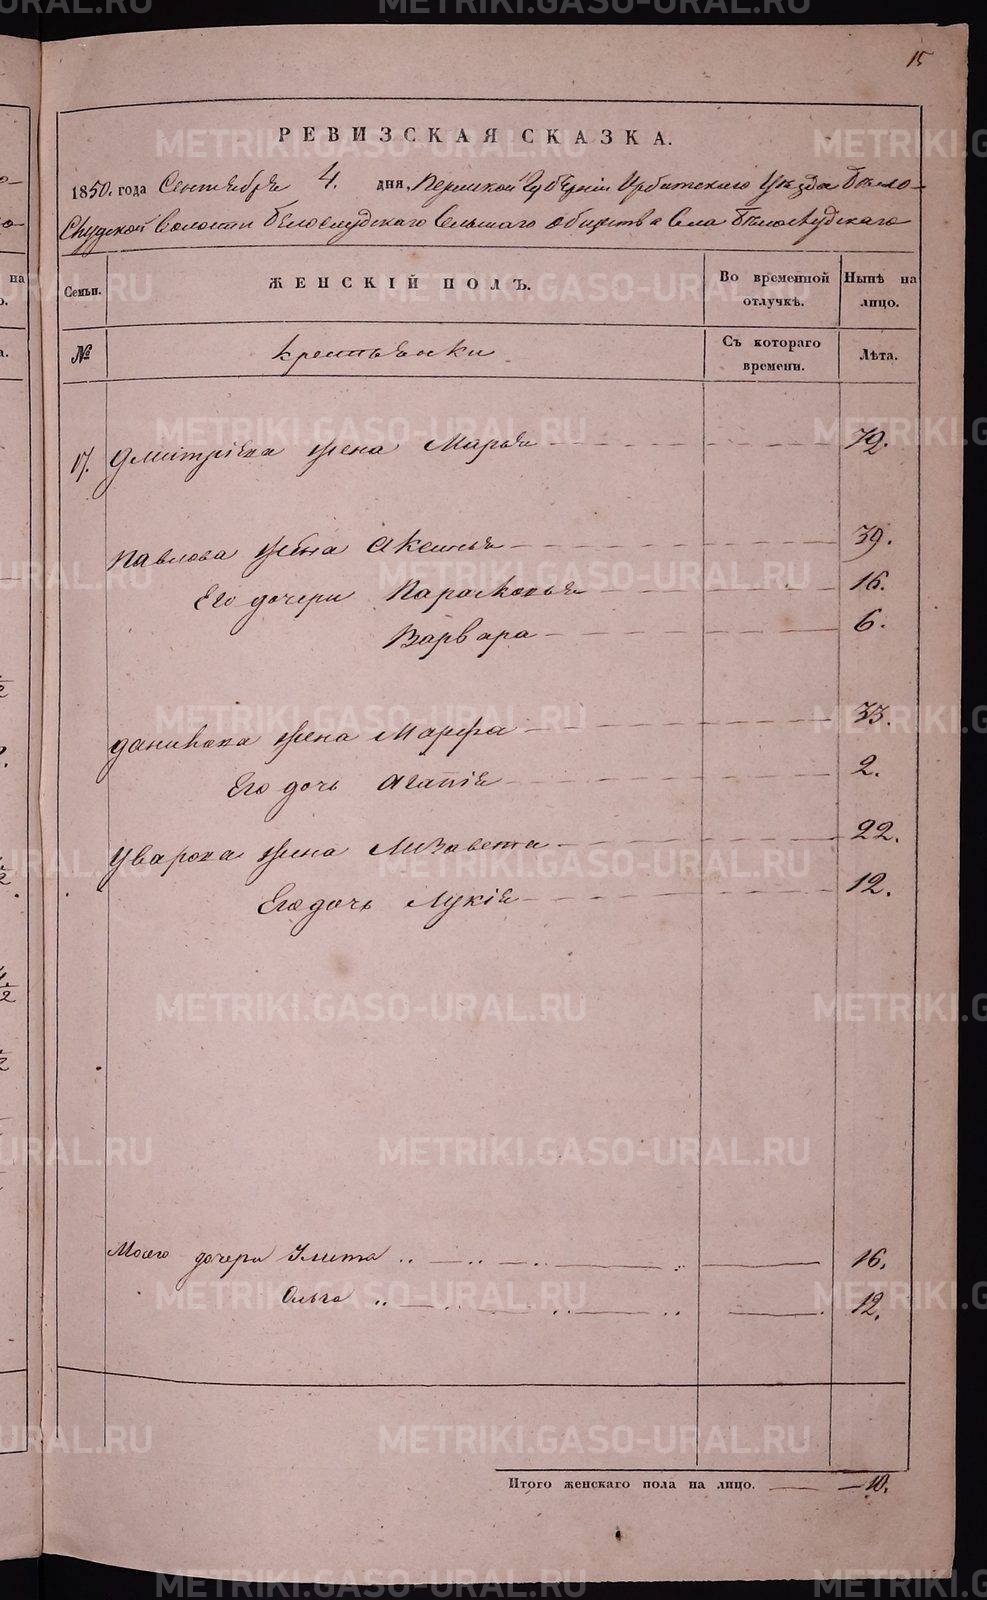 METRIKI.GASO-URAL.RU
15
РЕВИЗСКАЯ СКАЗКА.
1850. года Сентября 4. дня, Пермской Губерніи Ирбитскаго Уѣзда Бѣло-
Слудской Волости Бѣлослудскаго Сельскаго общества Села Бѣлослудскаго
Семьи. ЖЕНСКІЙ ПОЛЪ. Во временной отлучкѣ. Нынѣ на лицо.
№ крестьянки Съ котораго времени. Лѣта.
17. Дмитріева жена Марья 72.
Павлова жена Аксинья 39.
Его дочери Парасковья 16.
Варвара 6.
Данилова жена Марфа 33.
Его дочь Агапія 2.
Уварова жена Лизавета 22.
Его дочь Лукія 12.
Моего дочери Улита 16.
Ольга 12.
Итого женскаго пола на лицо. 10.